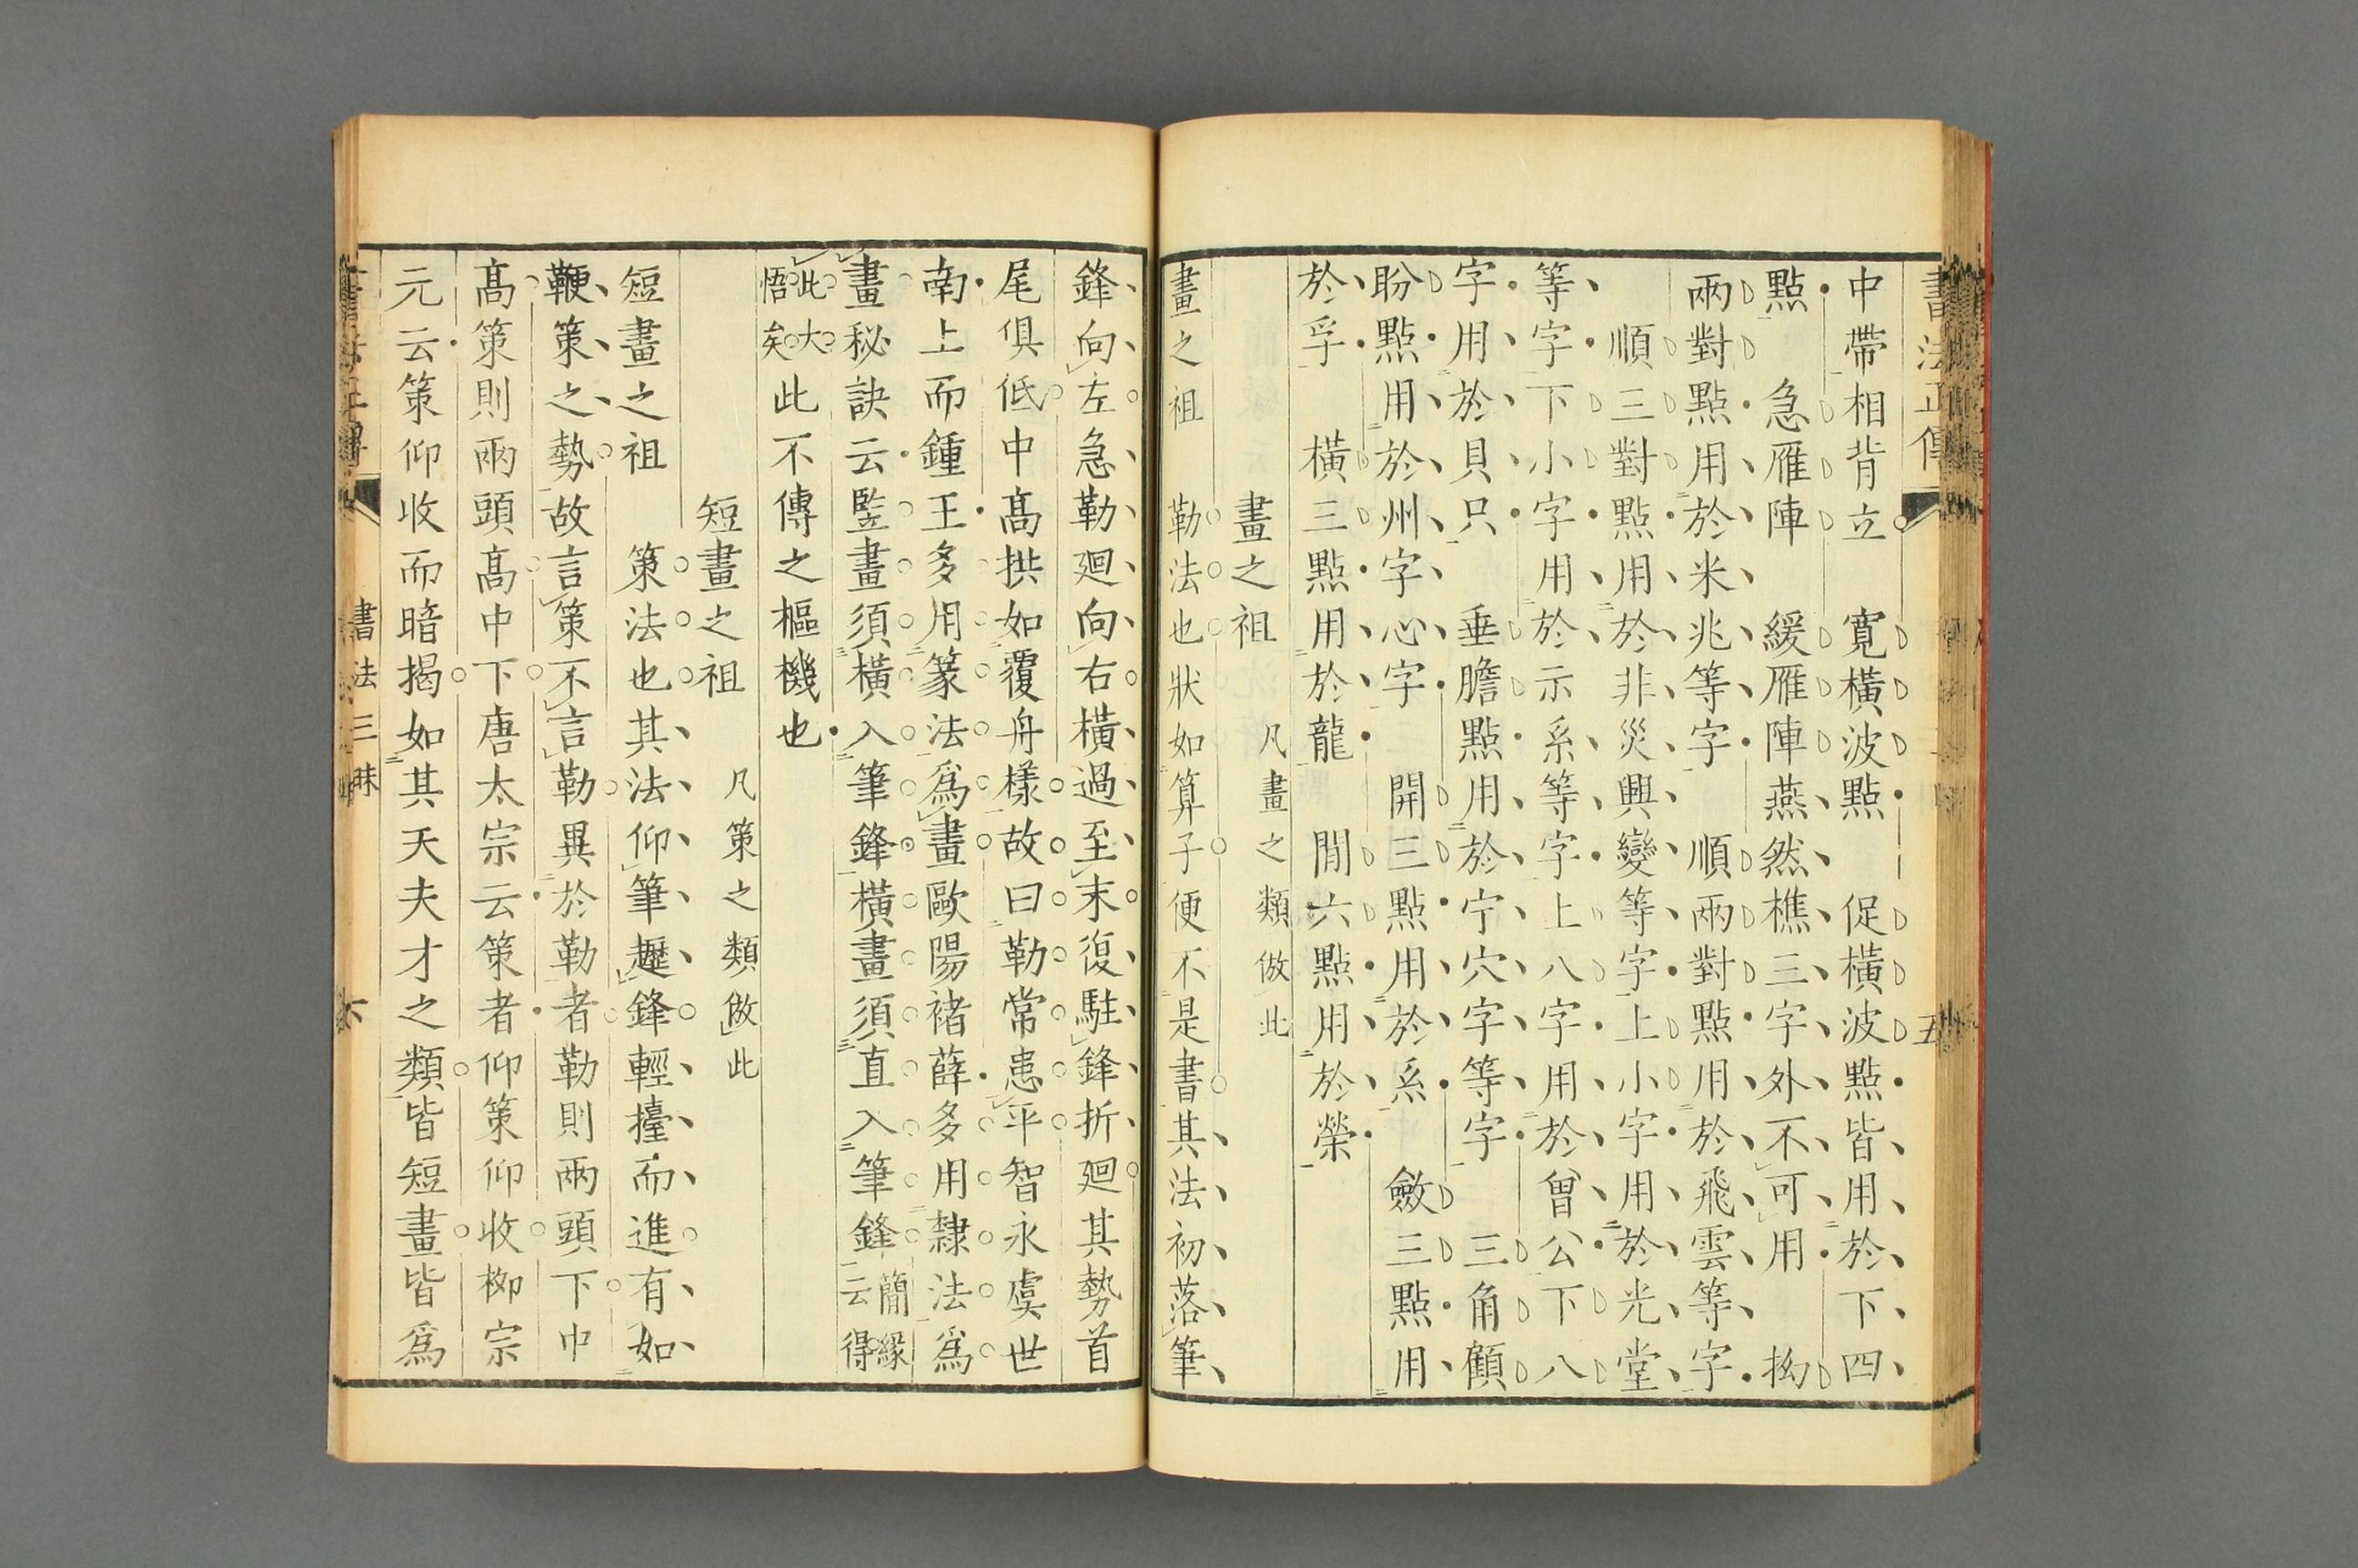 書法正傳
五
中帶相背立　寬橫波點　促橫波點皆用於下四
點　急雁陣　緩雁陣燕然樵三字外不可用　拗
兩對點用於米兆等字　順兩對點用於飛雲等字
順三對點用於非災興變等字上小字用於光堂
等字下小字用於示系等字上八字用於曾公下八
字用於貝只　垂膽點用於宁穴字等字　三角顧
盼點用於州字心字　開三點用於糸　斂三點用
於孚　橫三點用於龍　閒六點用於榮
畫之祖　凡畫之類倣此
畫之祖　勒法也狀如算子便不是書其法初落筆
鋒向左急勒廻向右橫過至末復駐鋒折廻其勢首
尾俱低中高拱如覆舟樣故曰勒常患平智永虞世
南上而鍾王多用篆法爲畫歐陽褚薛多用隸法爲
畫秘訣云竪畫須橫入筆鋒橫畫須直入筆鋒簡緣云得
此大悟矣此不傳之樞機也
短畫之祖　凡策之類倣此
短畫之祖　策法也其法仰筆趯鋒輕擡而進有如
鞭策之勢故言策不言勒異於勒者勒則兩頭下中
高策則兩頭高中下唐太宗云策者仰策仰收柳宗
元云策仰收而暗揭如其天夫才之類皆短畫皆爲
書法三昧
六